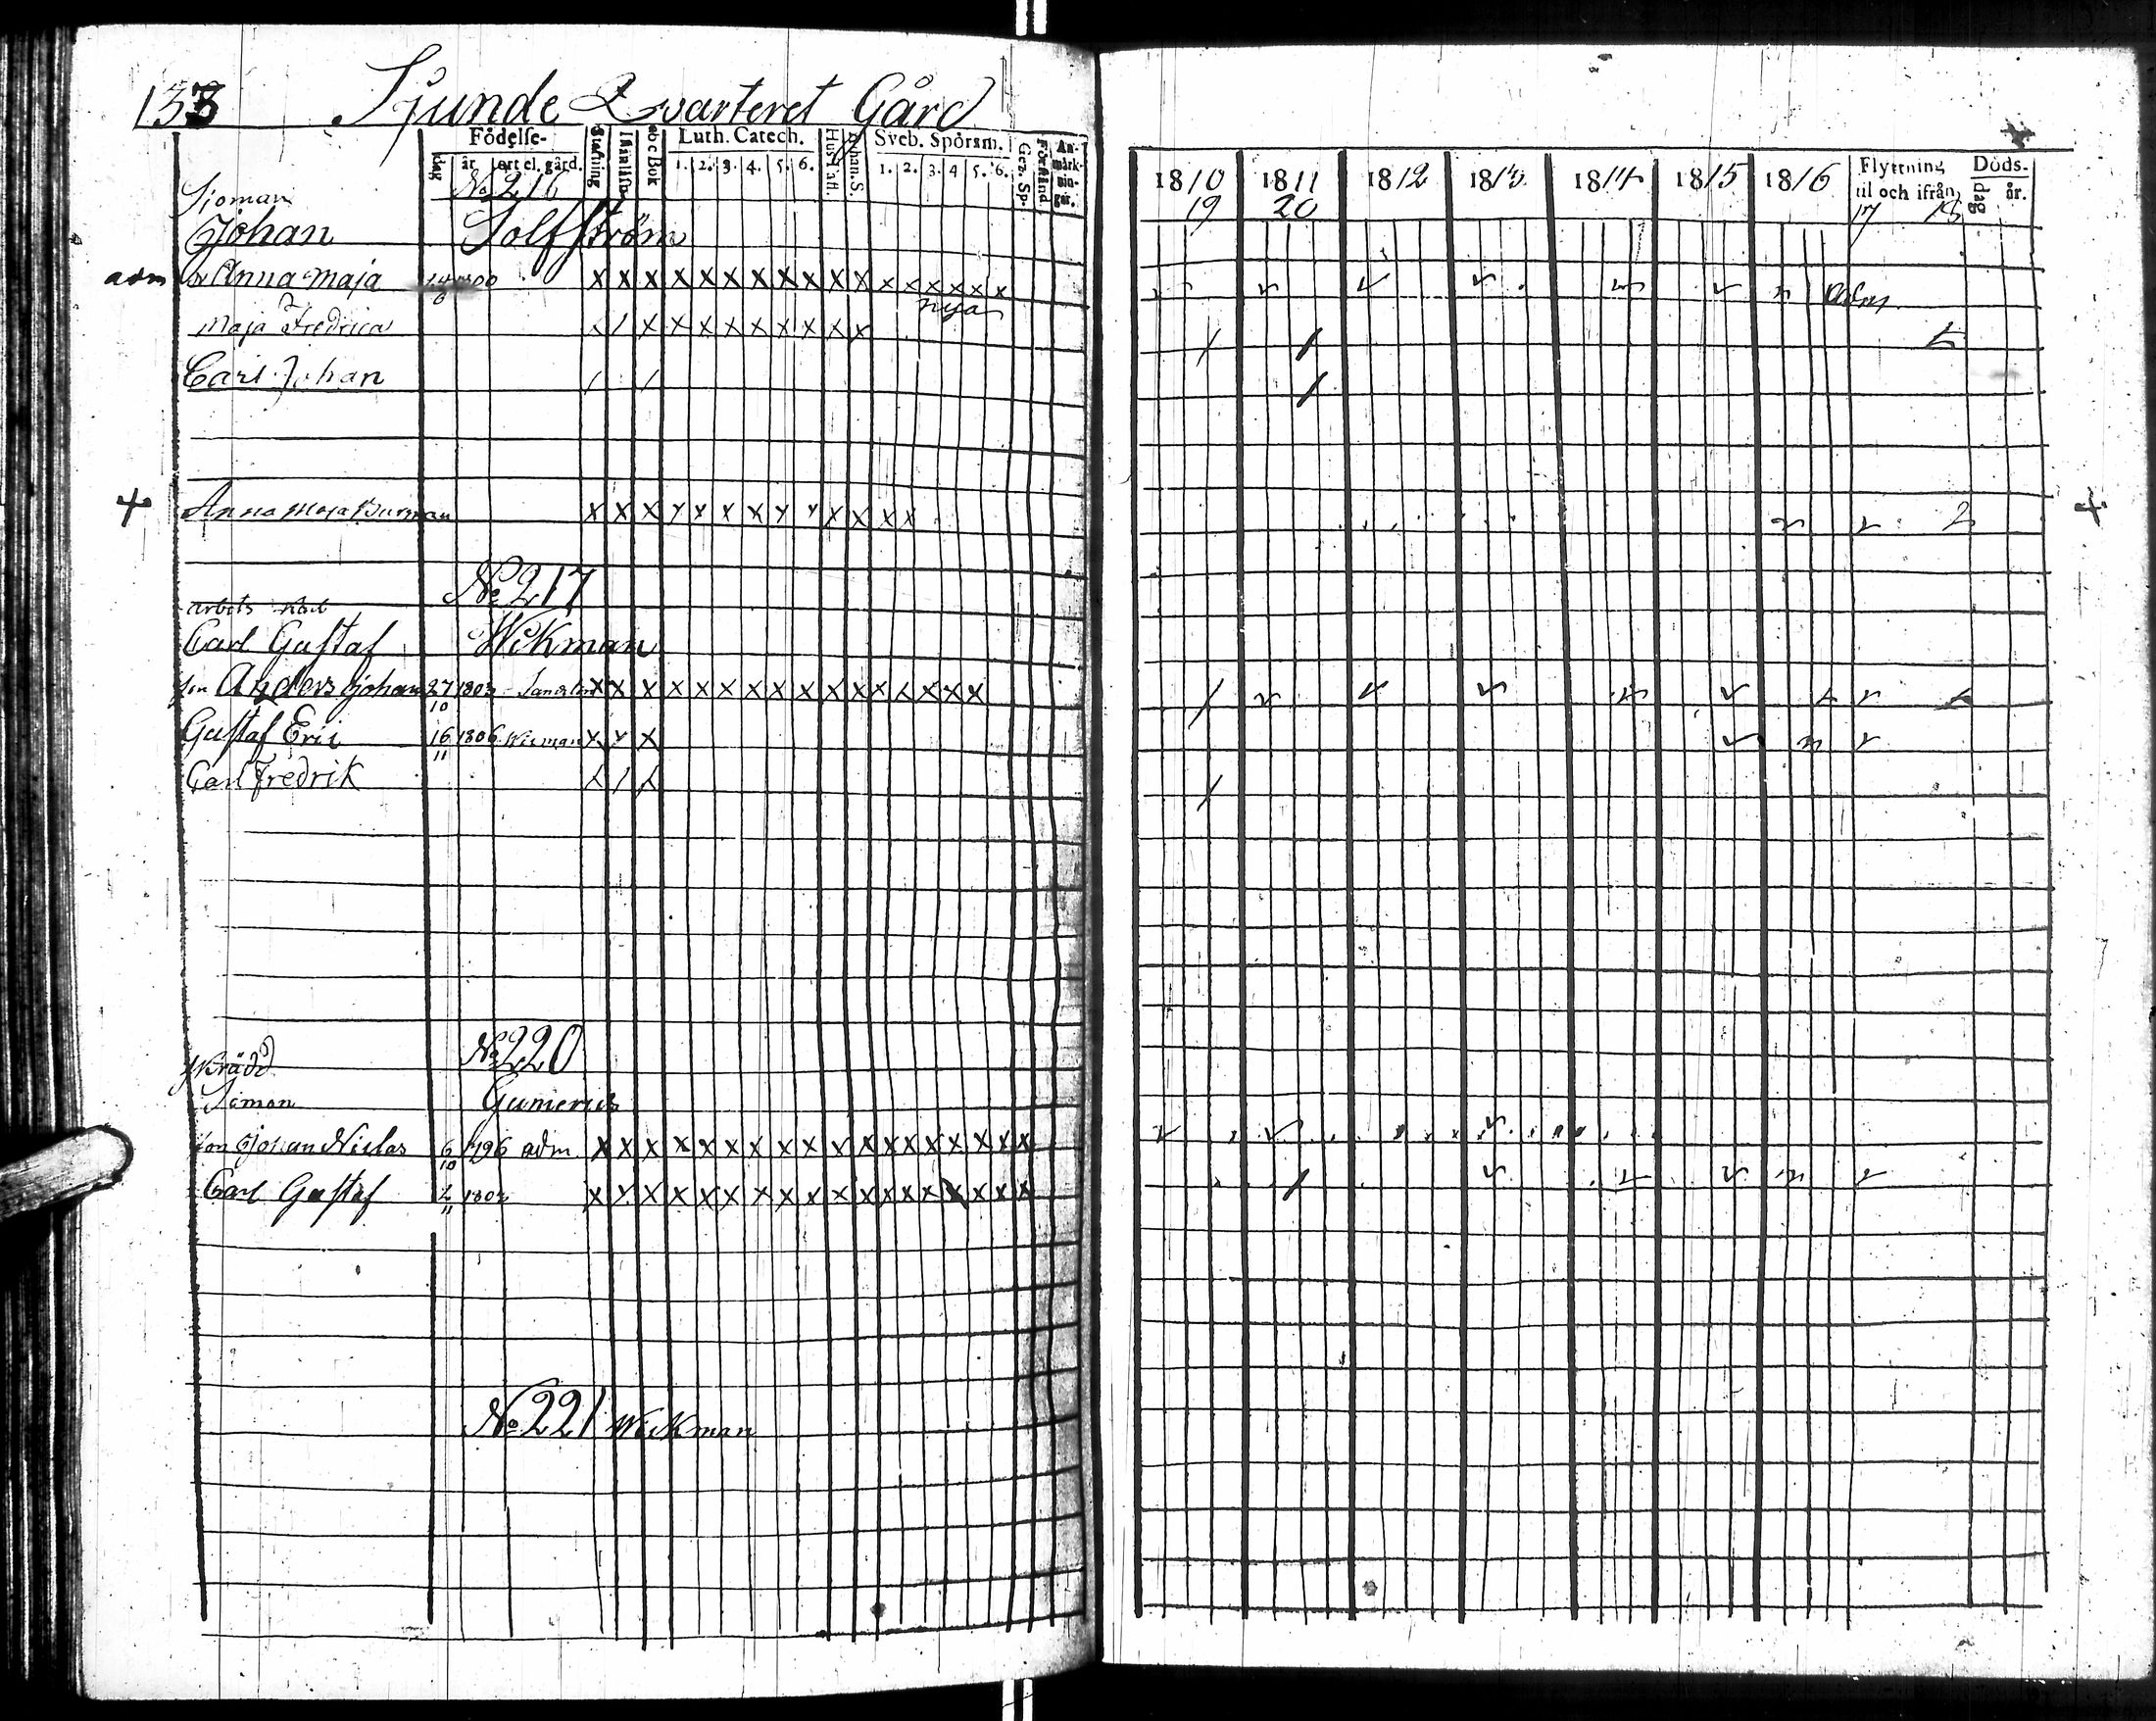 133 Sjunde Qvarteret Gård
Födelse- Stafning Innanläsn abc Bok Luth. Catech. Hus Tafl. Athan. S. Sveb. Spörsm. Gez. Sp. Förstånd Anmärkningar.
dag år ort el. gård. 1. 2. 3. 4. 5. 6. 1. 2. 3. 4 5. 6.
1810 1811 1812 1813 1814 1815 1816 Flyttning til och ifrån Döds- dag år.
19 20 17 18
Sjöman No 216
Johan Solfström
adm Anna Maja 14 1800 x x x x x x x x x x x x x x x x x adm
nya
Maja Fredrica x / x x x x x x x x x
Carl Johan / /
Anna Maja Burman x x x x x x x x x x x x x
No 217
arbets karl
Carl Gustaf Wikman
son Anders Johan 27/10 1803 x x x x x x x x x x x x x x x x
Gustaf Eric 16/11 1806 Wikman x x x
Carl Fredrik x / x
No 220
Simon Gumerus
son Johan Niclas 6/10 1796 adm x x x x x x x x x x x x x x x x x x
Carl Gustaf 2/11 1803 x x x x x x x x x x x x x x x x x x
No 221 Wikman